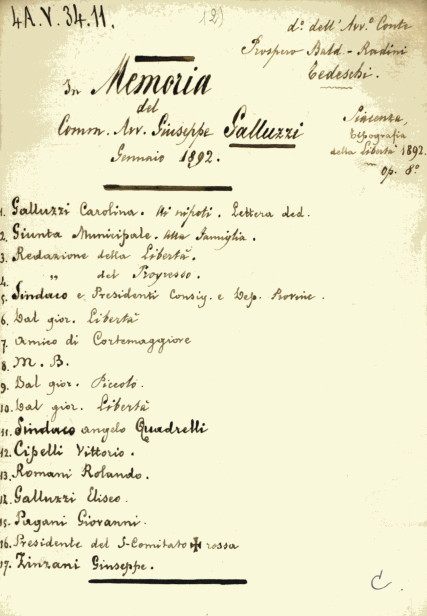 4A.V.34.11.
(2)
d.º dell'Avv.º Conte
Prospero Bald.-Radini
Tedeschi.
In Memoria
del
Comm. Avv. Giuseppe Galluzzi
Gennaio 1892.
Piacenza,
tipografia
della Libertà 1892.
op. 8º
1. Galluzzi Carolina. Ai nipoti. Lettera ded.
2. Giunta Municipale. Alla famiglia.
3. Redazione della Libertà.
4. „ del Progresso.
5. Sindaco e Presidenti Consig. e Dep. Provinc.
6. Dal gior. Libertà
7. Amico di Cortemaggiore
8. M. B.
9. Dal gior. Piccolo.
10. Dal gior. Libertà
11. Sindaco angelo Quadrelli
12. Cipelli Vittorio.
13. Romani Rolando.
14. Galluzzi Eliseo.
15. Pagani Giovanni.
16. Presidente del S-Comitato ✠ rossa
17. Zinzani Giuseppe.
C.